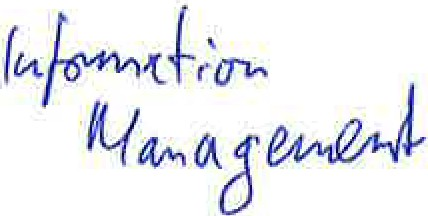 Information
Management